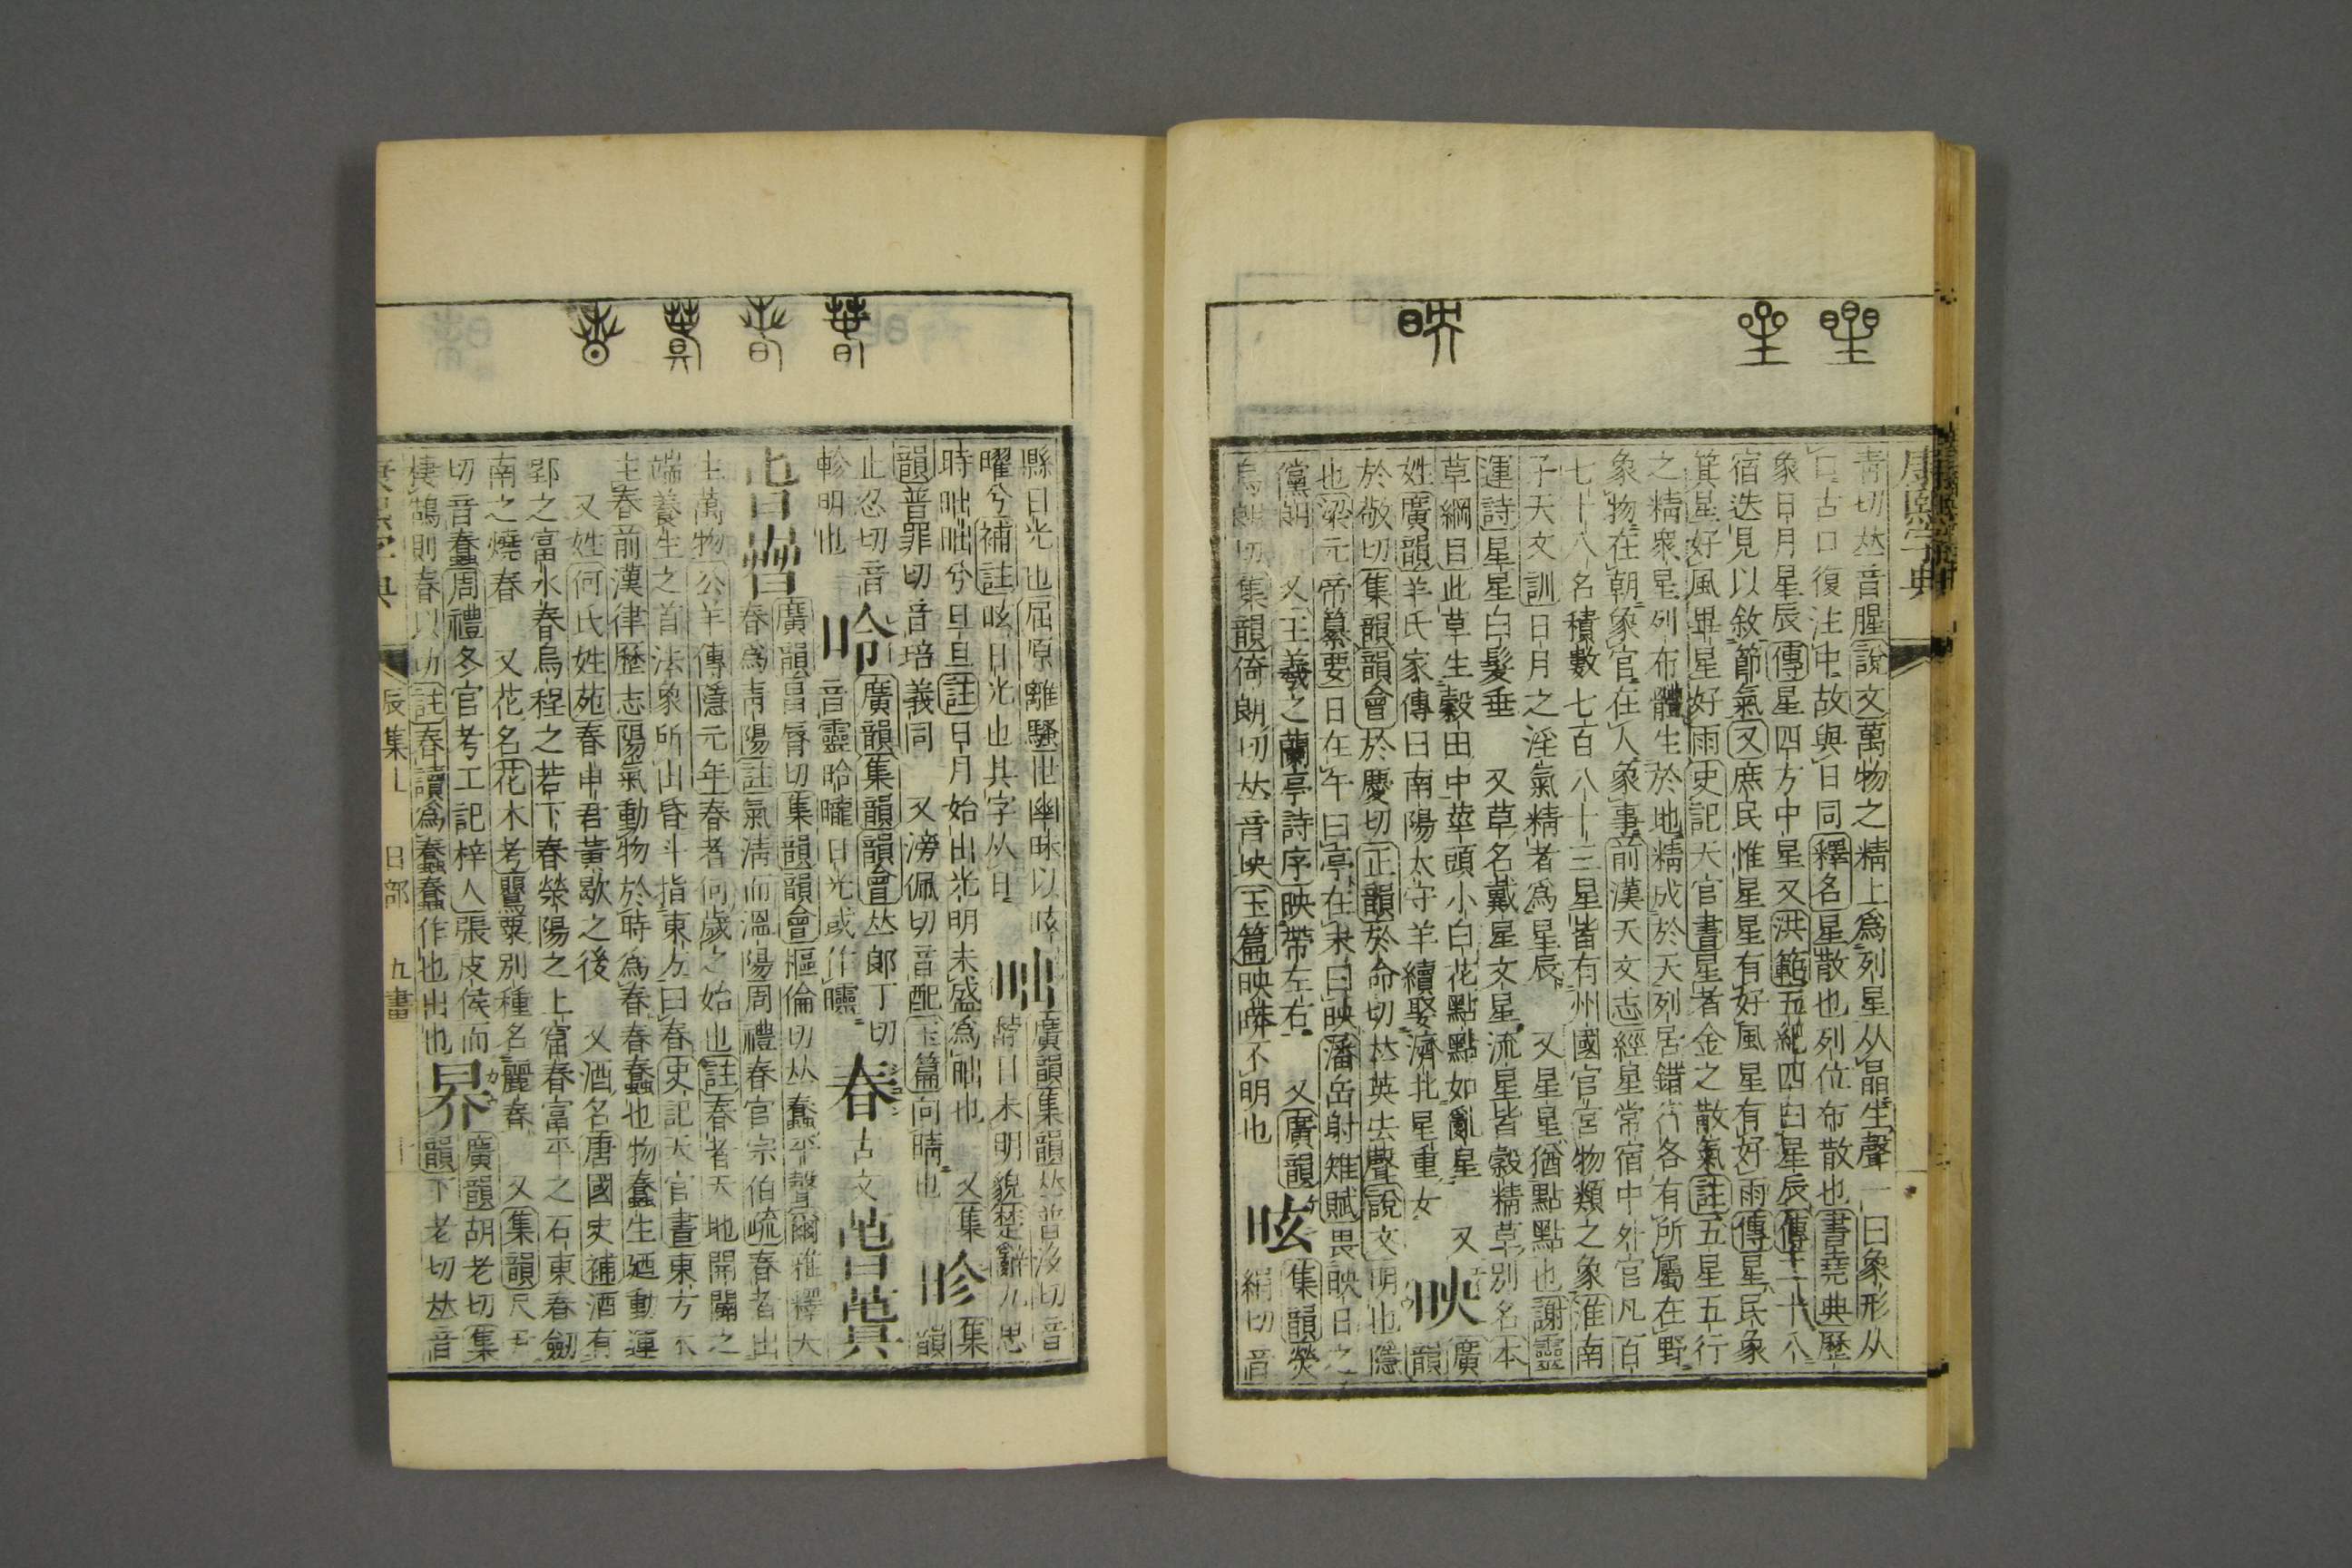 康熙字典
青切𠀤音腥說文萬物之精上爲列星从晶生聲一曰象形从
口古口復注中故與日同釋名星散也列位布散也書堯典歷
象日月星辰傳星四方中星又洪範五紀四曰星辰傳二十八
宿迭見以敘節氣又庶民惟星星有好風星有好雨傳星民象
箕星好風畢星好雨史記天官書星者金之散氣註五星五行
之精衆星列布體生於地精成於天列居錯行各有所屬在野
象物在朝象官在人象事前漢天文志經星常宿中外官凡百
七十八名積數七百八十三星皆有州國官宮物類之象淮南
子天文訓日月之淫氣精者爲星辰 又星星猶點點也謝靈
運詩星星白髮垂 又草名戴星文星流星皆穀精草別名本
草綱目此草生穀田中莖頭小白花點點如亂星 又
姓廣韻羊氏家傳曰南陽太守羊續娶濟北星重女
映
廣
韻
於敬切集韻韻會於慶切正韻於命切𠀤英去聲說文明也隱
也梁元帝纂要日在午曰亭在未曰映潘岳射雉賦畏映日之
儻朗 又王羲之蘭亭詩序映帶左右 又廣韻
烏朗切集韻倚朗切𠀤音坱玉篇映㬻不明也
昡
集韻熒
絹切音
縣日光也屈原離騷世幽昧以昡
曜兮補註昡日光也其字从日
昢
廣韻集韻𠀤普沒切音
㪍日未明貌楚辭九思
時昢昢兮旦旦註日月始出光明未盛爲昢也 又集
韻普罪切音培義同 又滂佩切音配玉篇向晴也
昣
集
韻
止忍切音
軫明也
昤
廣韻集韻韻會𠀤郞丁切
音靈昤曨日光或作㬡
春
古文
萅
㫩
旾
廣韻昌脣切集韻韻會樞倫切𠀤蠢平聲爾雅釋天
春爲靑陽註氣淸而溫陽周禮春官宗伯疏春者出
生萬物公羊傳隱元年春者何歲之始也註春者天地開闢之
端養生之首法象所出昏斗指東方曰春史記天官書東方木
主春前漢律歷志陽氣動物於時爲春春蠢也物蠢生迺動運
又姓何氏姓苑春申君黃歇之後 又酒名唐國史補酒有
郢之富水春烏程之若下春滎陽之上窟春富平之石東春劒
南之燒春 又花名花木考罌粟別種名麗春 又集韻尺尹
切音蠢周禮冬官考工記梓人張皮侯而
棲鵠則春以功註春讀爲蠢蠢作也出也
昦
廣韻胡老切集
韻下老切𠀤音
康熙字典
辰集上 日部 九畫